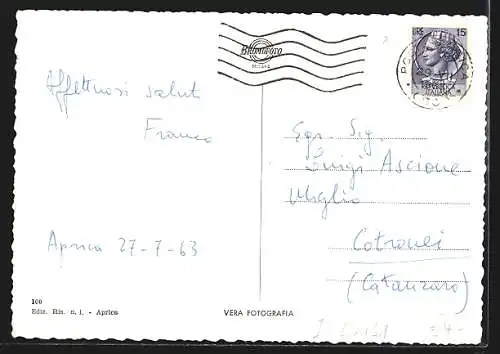 Affettuosi saluti
Franco
Aprica 27-7-63
100
Ediz. Rin. n. i. - Aprica
VERA FOTOGRAFIA
15
REPUBBLICA
ITALIANA
Egr. Sig.
Luigi Ascione
Miglio
Cotronei
(Catanzaro)